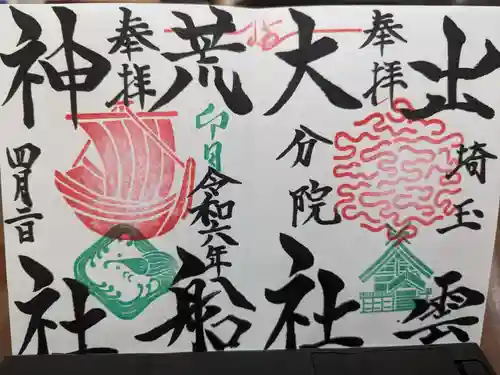 出雲
埼玉
奉拝
分院
大社
荒船
卯月
令和六年
奉拝
神社
四月二日